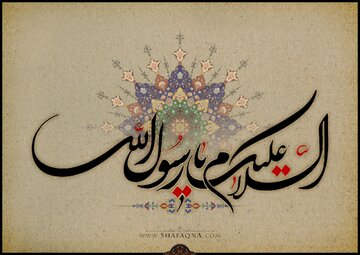 السلام علیک یا رسول الله
WWW.SHAFAQNA.COM